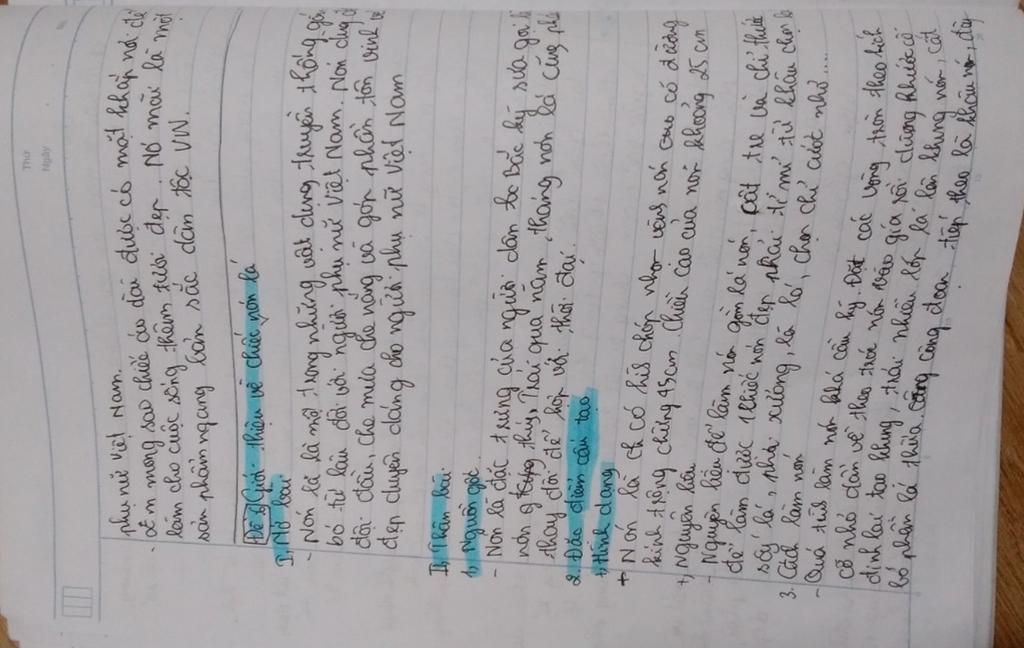 Thứ
Ngày
phụ nữ Việt Nam.
- ước mong sao chiếc áo dài được có mặt khắp nơi để
làm cho cuộc sống thêm tươi đẹp. Nó mãi là một
sản phẩm mang bản sắc dân tộc VN.
Đề 2 Giới thiệu về chiếc nón lá
I, Mở bài
- Nón lá là một trong những vật dụng truyền thống gắn
bó từ lâu đời với người phụ nữ Việt Nam. Nón dùng để
đội đầu, che mưa che nắng và góp phần tôn vinh vẻ
đẹp duyên dáng cho người phụ nữ Việt Nam
II, Thân bài
1, Nguồn gốc
- Nón là đặc trưng của người dân tộc Bắc kỳ xưa gọi là
nón thúy, Trải qua năm tháng nón lá cũng phải
thay đổi để hợp với thời đại.
2. Đặc điểm cấu tạo
+ Hình dạng
+ Nón lá có hình chóp nhọn vành nón có đường
kính rộng chừng 45cm chiều cao của nón khoảng 25 cm
+, Nguyên liệu
- Nguyên liệu để làm nón gồm lá nón, cật tre và chỉ
để làm được 1 chiếc nón đẹp phải tỉ mỉ từ khâu chọn lá
sấy lá, phơi sương, là lá, chọn chỉ cước nhỏ....
3. Cách làm nón
- Quá trình làm nón khá cầu kỳ. Đặt các vòng tròn theo kích
cỡ nhỏ dần về theo trái nón vào giá rồi dùng cước cố
định lại tạo khung, trải nhiều lớp lá lên khung nón, cắt
bỏ phần lá thừa công đoạn tiếp theo là khâu nón, đây